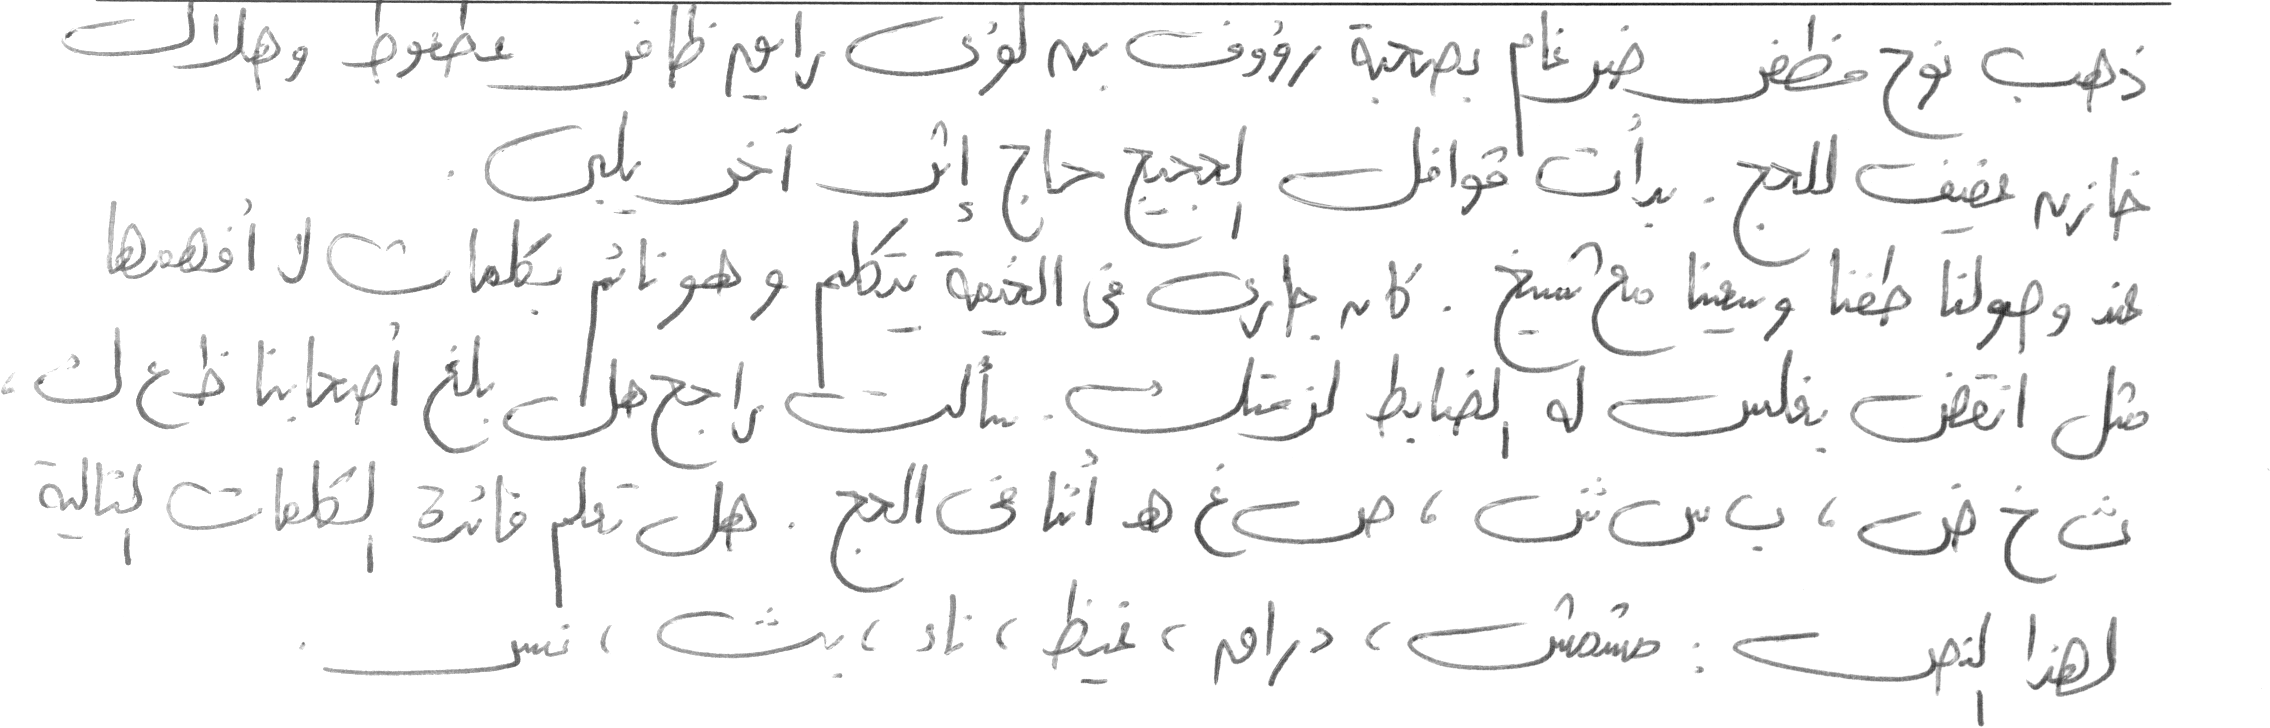 ذهب نوح مظفر ضرغام بصحبة رؤوف بن لؤى راعي ظافر عطعوط وهلال
خازن عفيف للحج. بدأت قوافل الحجيج حاج إثر آخر يلبى.
عند وصولنا طفنا وسعينا مع شيخ. كان جارى فى الخيمة يتكلم وهو نائم بكلمات لا أفهمها
مثل انقض بفلس له الضابط لزمتك. سألت راجح هل بلغ أصحابنا ظ ع ك،
ث خ ض، ب س ش، ص غ ه أثنا فى الحج. هل تعلم فائدة الكلمات التالية
لهذا النص: مشمش، دراهم، غيظ، ناد، بث، نس.